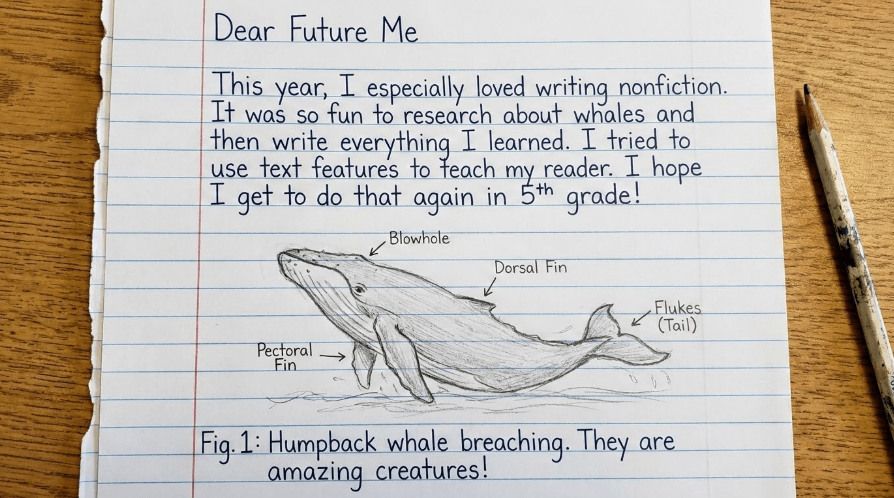 Dear Future Me
This year, I especially loved writing nonfiction.
It was so fun to research about whales and
then write everything I learned. I tried to
use text features to teach my reader. I hope
I get to do that again in 5th grade!
Blowhole
Dorsal Fin
Flukes
(Tail)
Pectoral
Fin
Fig. 1: Humpback whale breaching. They are
amazing creatures!